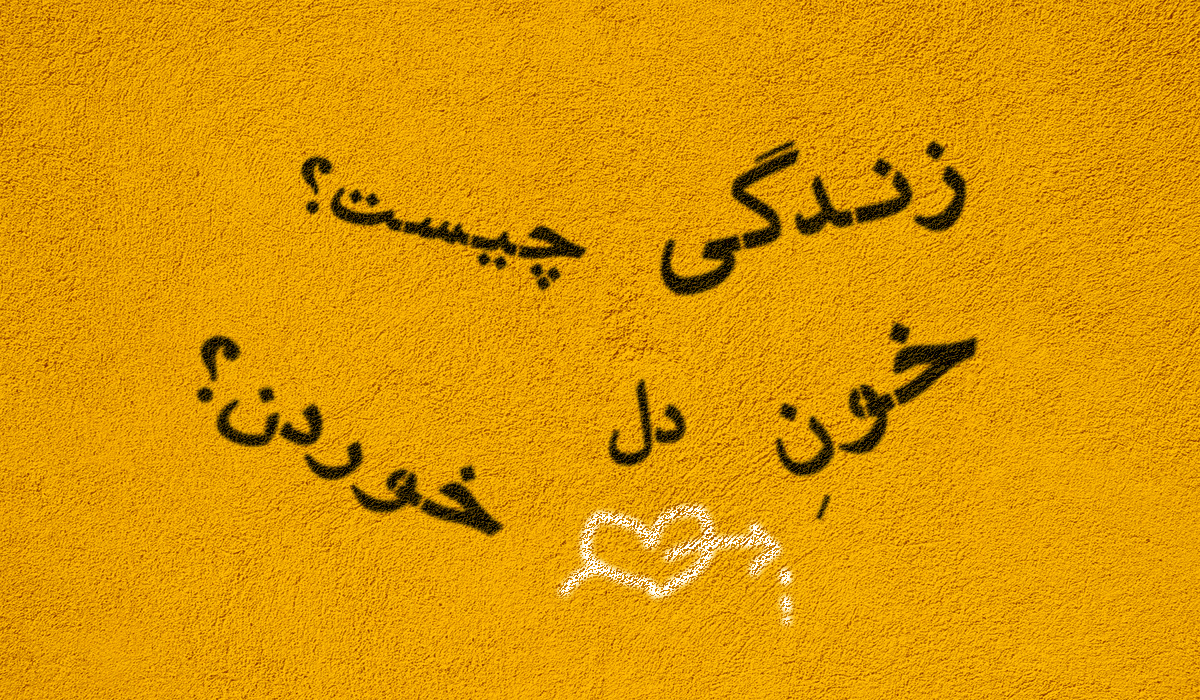 زندگی چیست؟
خونِ دل خوردن؟